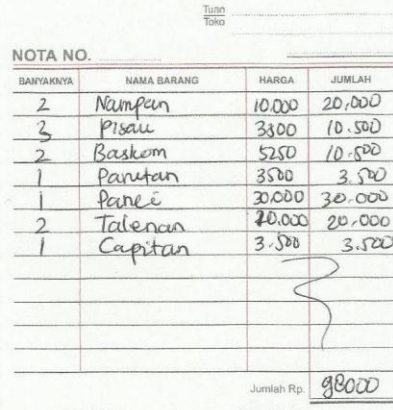 Tuan
Toko
NOTA NO.
BANYAKNYA NAMA BARANG HARGA JUMLAH
2 Nampan 10.000 20,000
3 Pisau 3500 10.500
2 Baskom 5250 10.500
1 Parutan 3500 3.500
1 Panci 30.000 30.000
2 Talenan 10.000 20.000
1 Capitan 3.500 3.500
Jumlah Rp. 98000